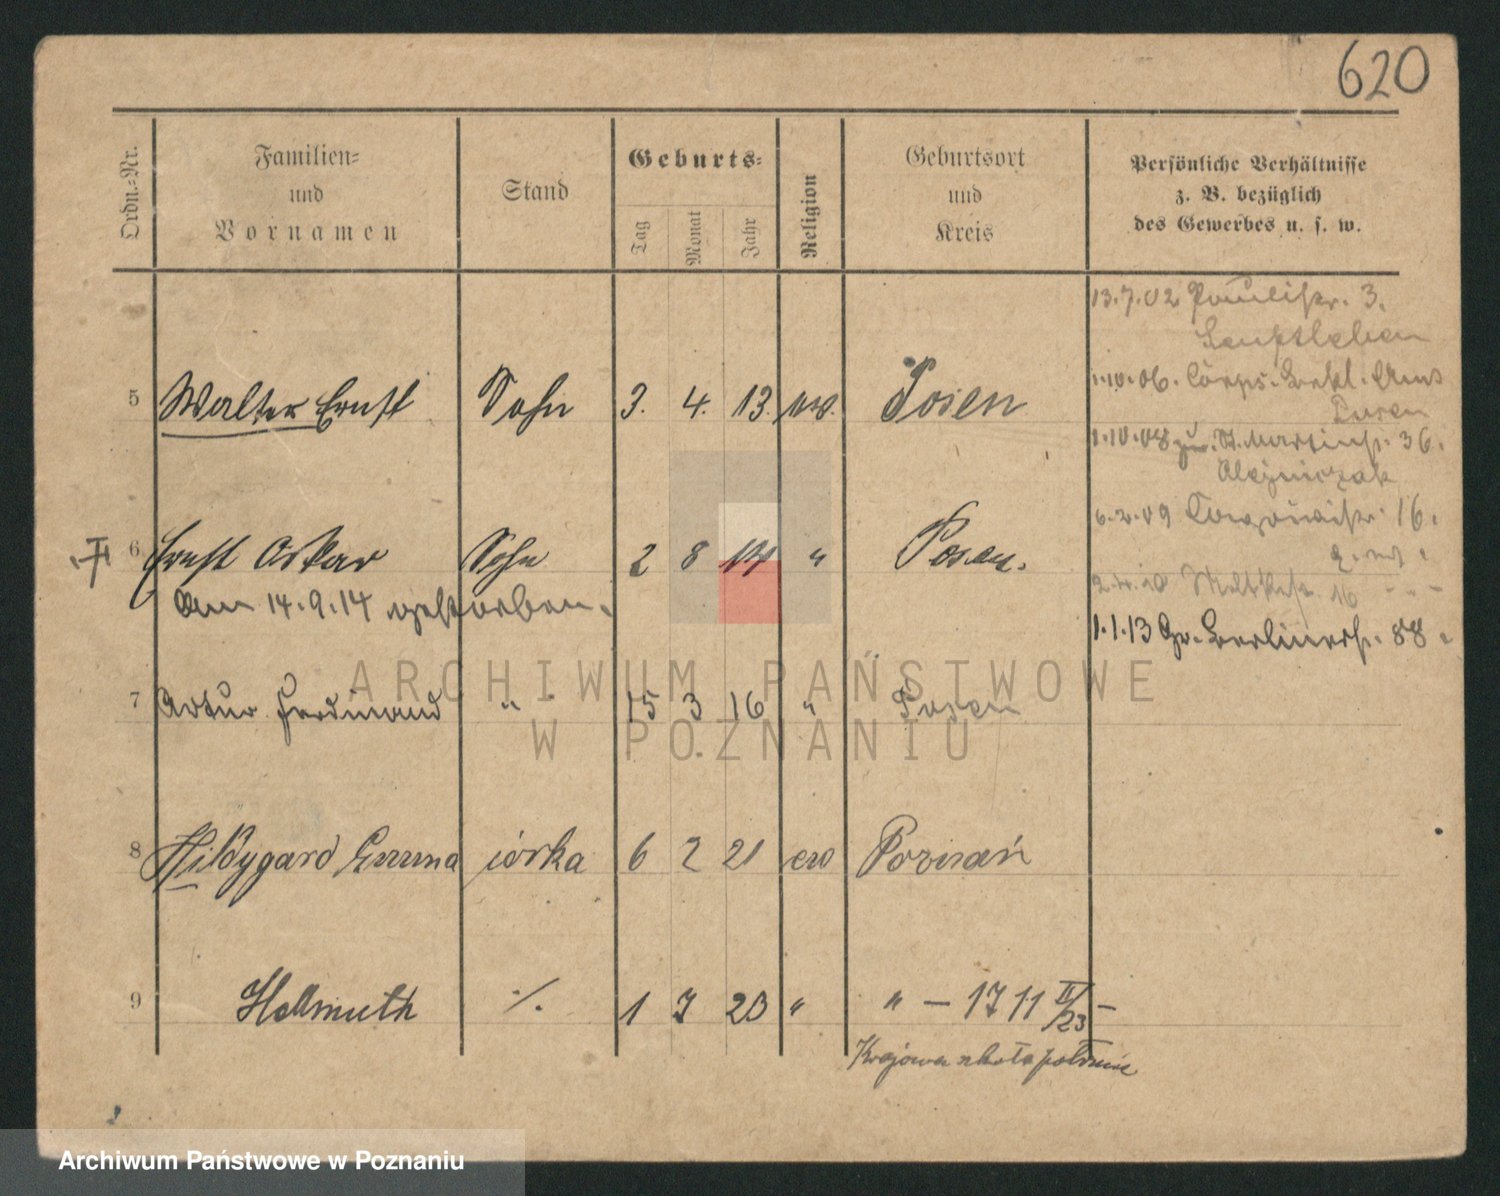 620
Ordn.-Nr.
Familien-
und
Vornamen
Stand
Geburts-
Tag
Monat
Jahr
Religion
Geburtsort
und
Kreis
Persönliche Verhältnisse
z. B. bezüglich
des Gewerbes u. s. w.
13.7.02 Paulistr. 3.
1.10.06.
Posen
5 Walter Ernst Sohn 3. 4. 13. ew. Posen
1.10.08 St. Martinstr. 36.
6.2.09 16.
6 Ernst Oskar Sohn 2 8 14 " Posen.
am 14.9.14 gestorben.
2.4.10 16 " -
1.1.13 Gr. Berlinerstr. 88.
7 Artur Ferdinand " 15 3 16 " Posen
8 Hildygard Emma córka 6 2 21 ew Poznań
9 Hellmuth ./. 1 7 23 " " — 1711 II/23 —
Krajowa szkoła położnic
ARCHIWUM PAŃSTWOWE
W POZNANIU
Archiwum Państwowe w Poznaniu